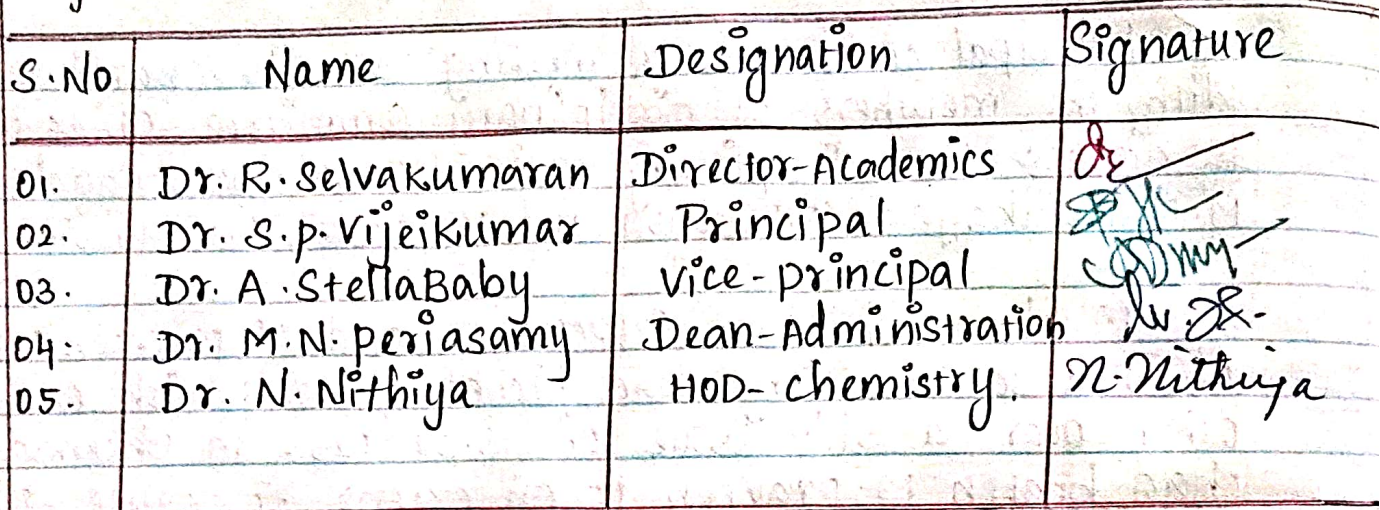 S.No Name Designation Signature
01. Dr. R. Selvakumaran Director-Academics
02. Dr. S.P. Vijeikumar Principal
03. Dr. A. StellaBaby Vice-principal
04. Dr. M.N. Periasamy Dean-Administration
05. Dr. N. Nithiya HOD-chemistry. N. Nithiya